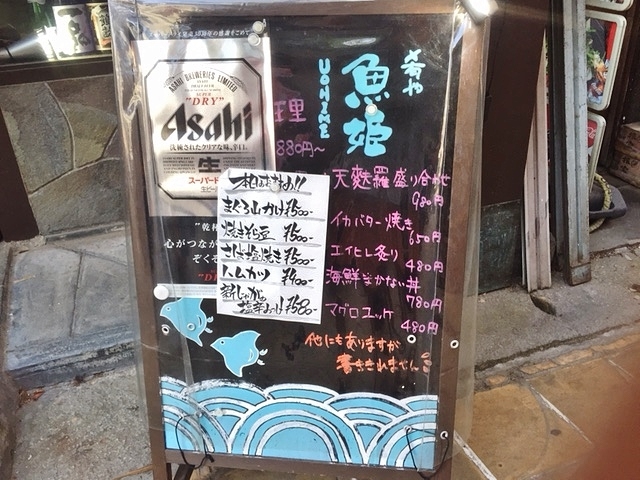 肴や
魚姫
UOHIME
ASAHI BREWERIES LIMITED
SUPER
"DRY"
Asahi
洗練されたクリアな味、辛口。
生
スーパード
生ビール
"乾杯
心がつなが
ぞくぞ
"D
理
880円~
まぐろ山かけ ¥500-
焼きそら豆 ¥500-
さんま塩焼き ¥500-
ハムカツ ¥400-
新じゃが
塩辛 ¥580-
天麩羅盛り合わせ
980円
イカバター焼き
650円
エイヒレ炙り
480円
海鮮まかない丼
780円
マグロユッケ
480円
他にもありますが
書ききれません